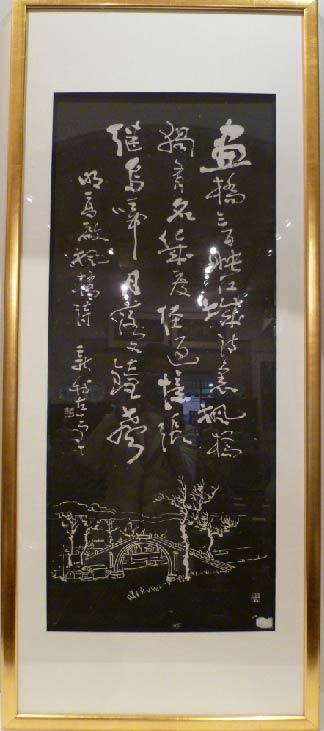 画橋三百映江城詩裏楓橋
獨有名幾度經過憶張
繼烏啼月落又鐘聲
明高啟楓橋詩